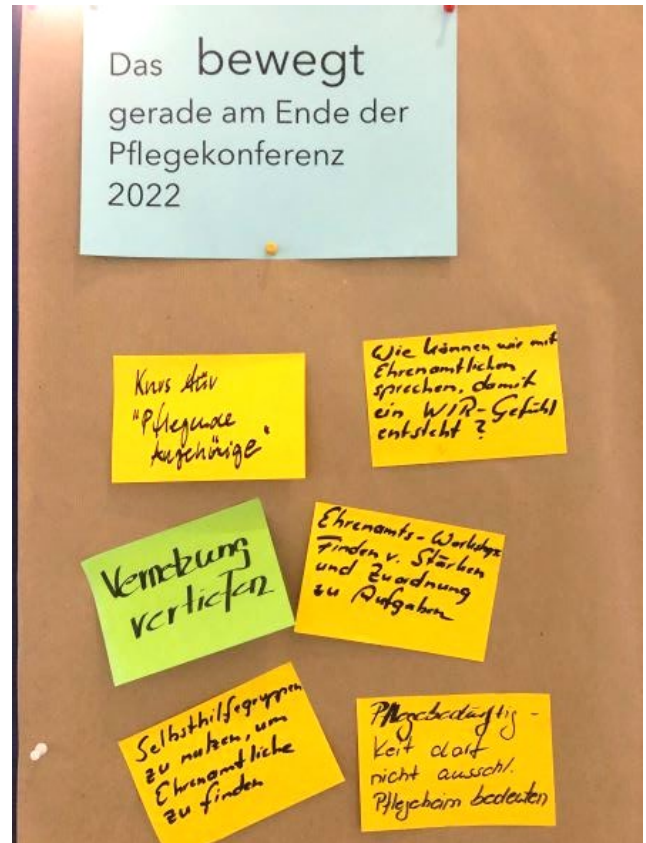 Das bewegt
gerade am Ende der
Pflegekonferenz
2022
Kurs für
"Pflegende
Angehörige"
Wie können wir mit
Ehrenamtlichen
sprechen, damit
ein WIR-Gefühl
entsteht?
Vernetzung
vertiefen
Ehrenamts-Workshops
Finden v. Stärken
und Zuordnung
zu Aufgaben
Selbsthilfegruppen
zu nutzen, um
Ehrenamtliche
zu finden
Pflegebedürftig-
keit darf
nicht ausschl.
Pflegeheim bedeuten